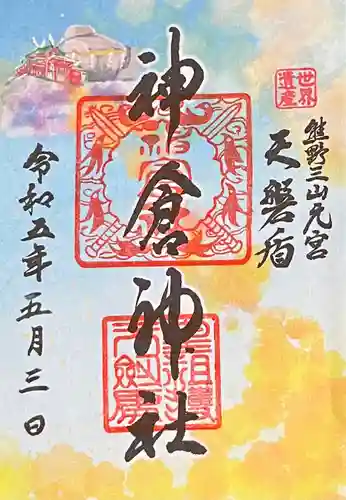 世界
遺産
熊野三山元宮
天磐盾
神倉神社
令和五年五月三日